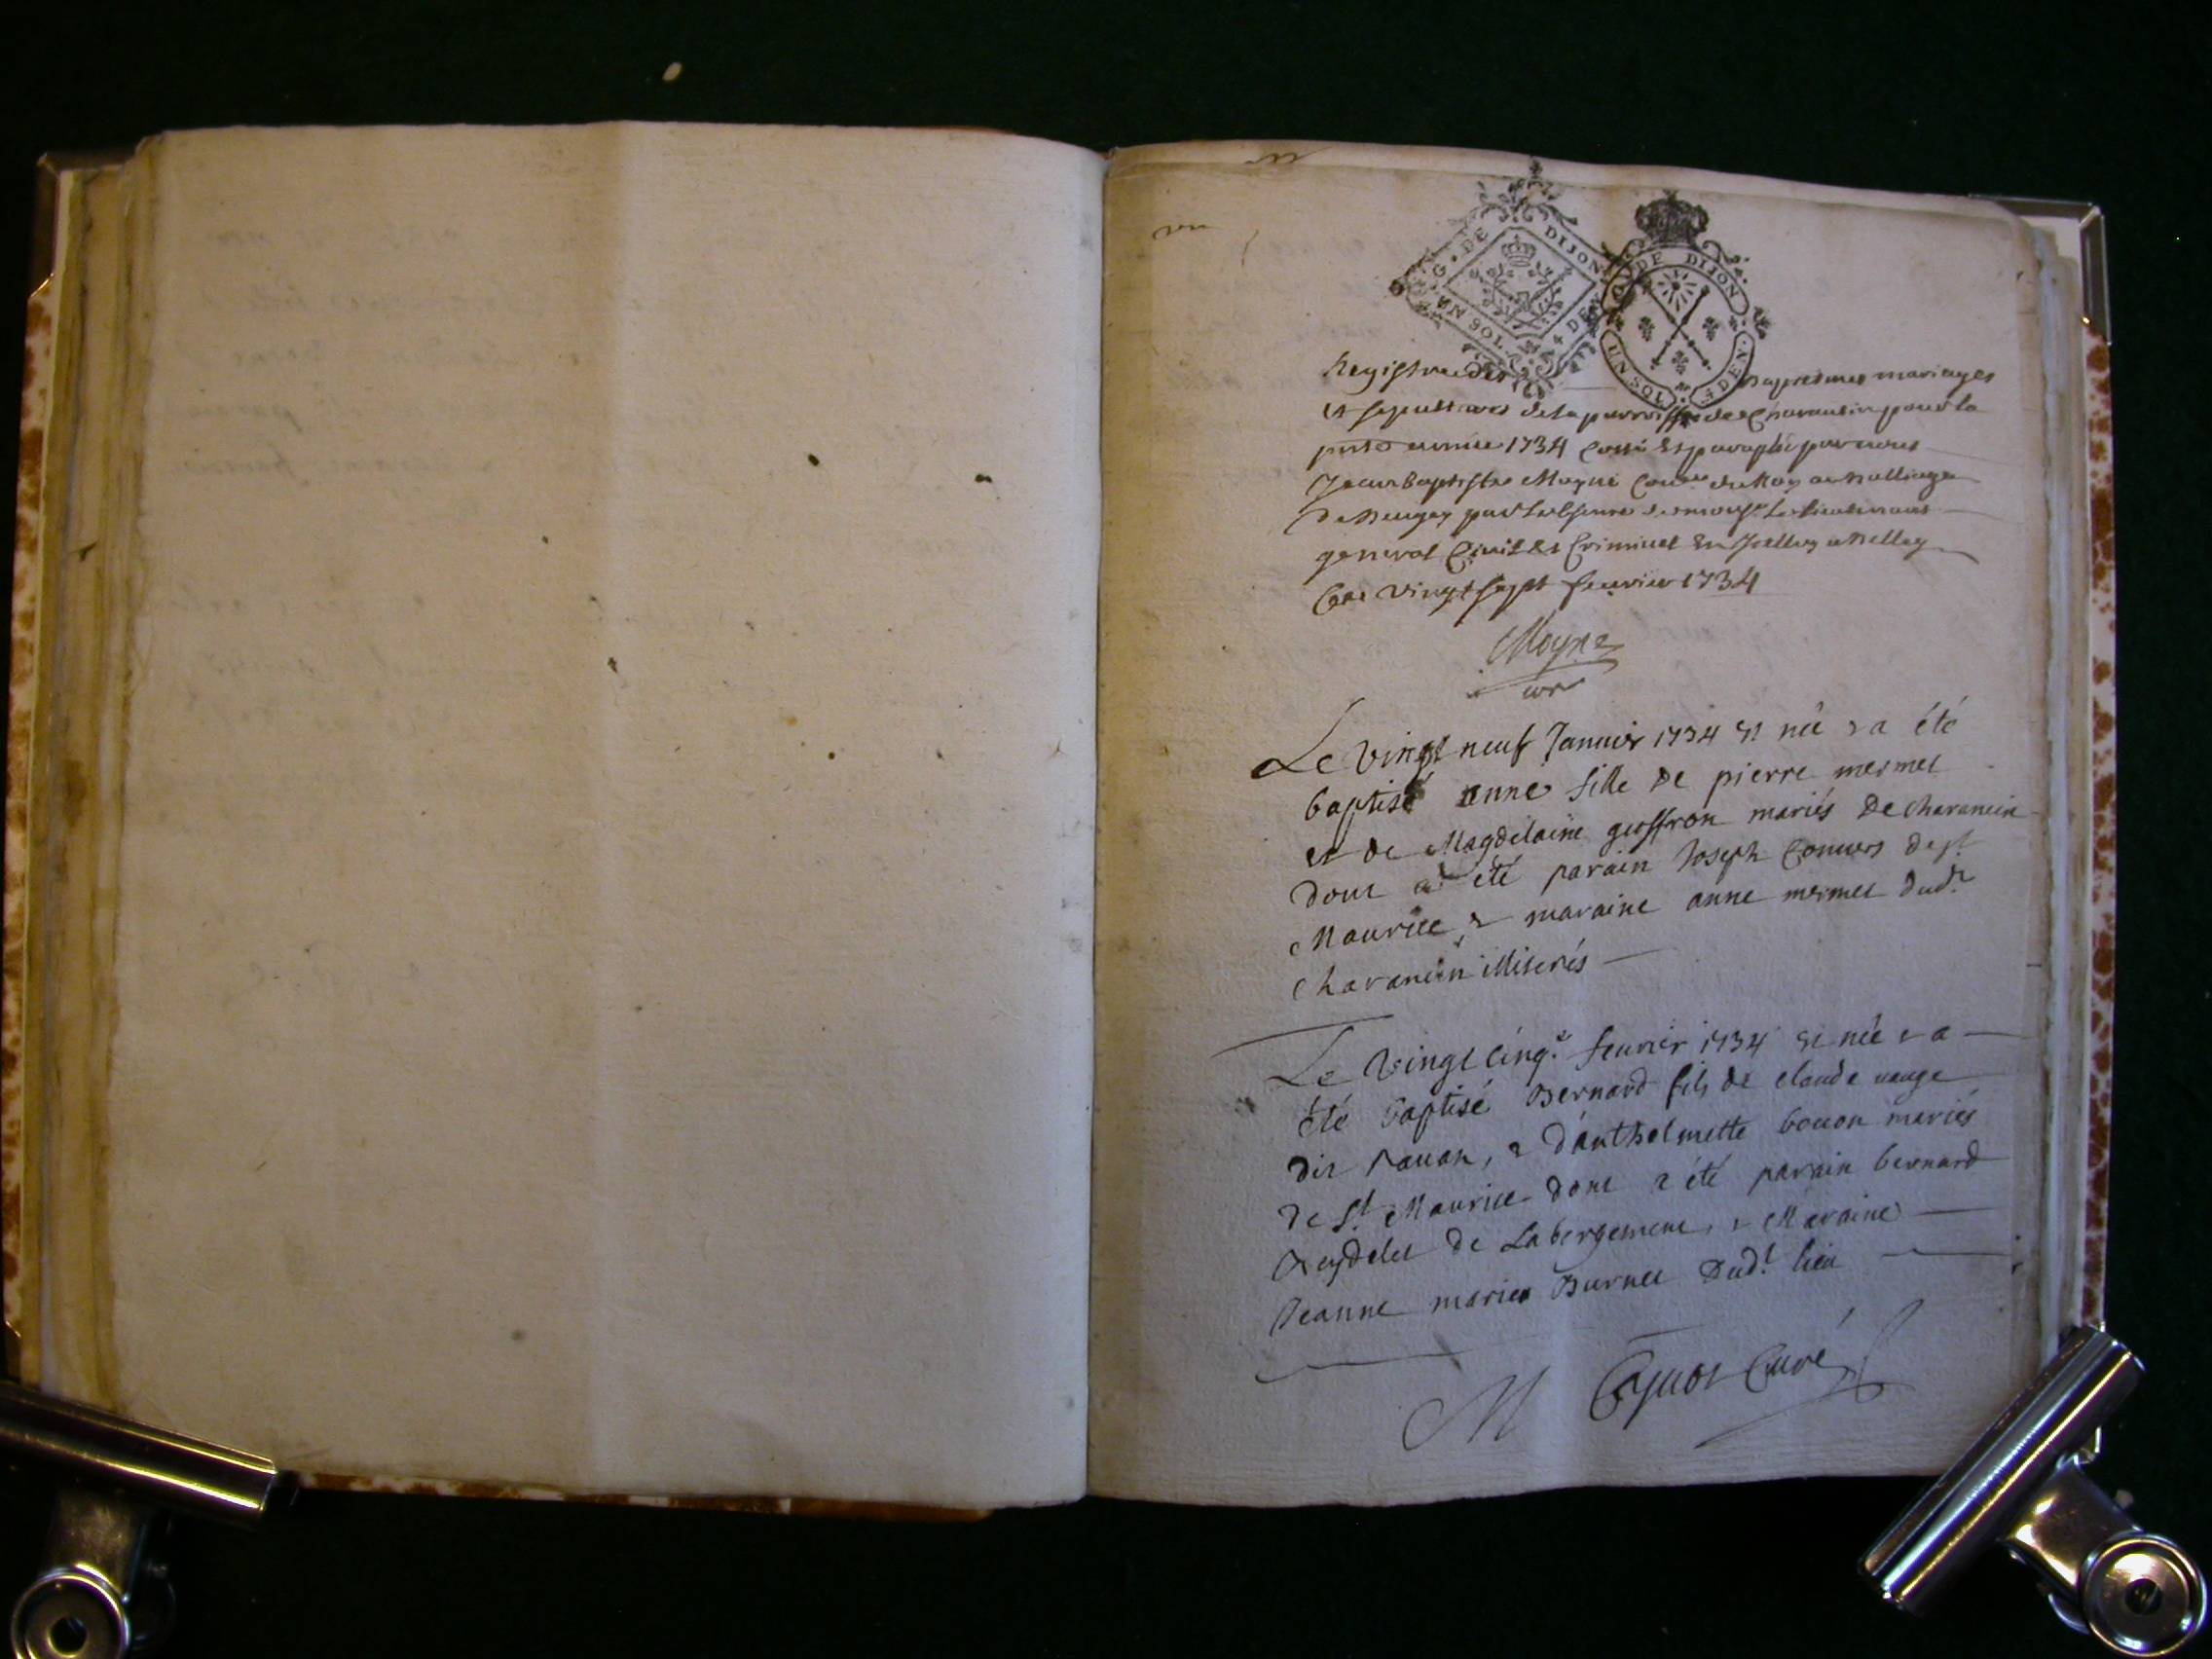 G. DE DIJON
UN SOL 4 DEN
DE DIJON
UN SOL 4 DEN.
Registre des baptesmes mariages
et sepultures de la parroisse de Charancin pour la
pnte année 1734 Cotté et paraphé par nous
Jean Baptiste Moyne Conser du Roy au Balliage
De Beugey pour l'absence de monsr. le lieutenant
general Civil et Criminel En Icelluy a Belley
Ce vingt sept feuvrier 1734
Moyne
Le vingt neuf Janvier 1734 est née & a été
baptisé anne fille de pierre mermet
et de Magdelaine geoffron mariés De charancin
dont a été parain Joseph Convers de st
Maurice & maraine anne mermet dudt
charancin illiterés
Le vingt cinqe fevrier 1734 est née & a
été baptisé Bernard fils de claude
dit pavan, & d'anthelmette bovon mariés
de St Maurice dont a été parain bernard
Reydelet de Labergement, & Maraine
Jeanne marie Burnet Dudt lieu
M Curé